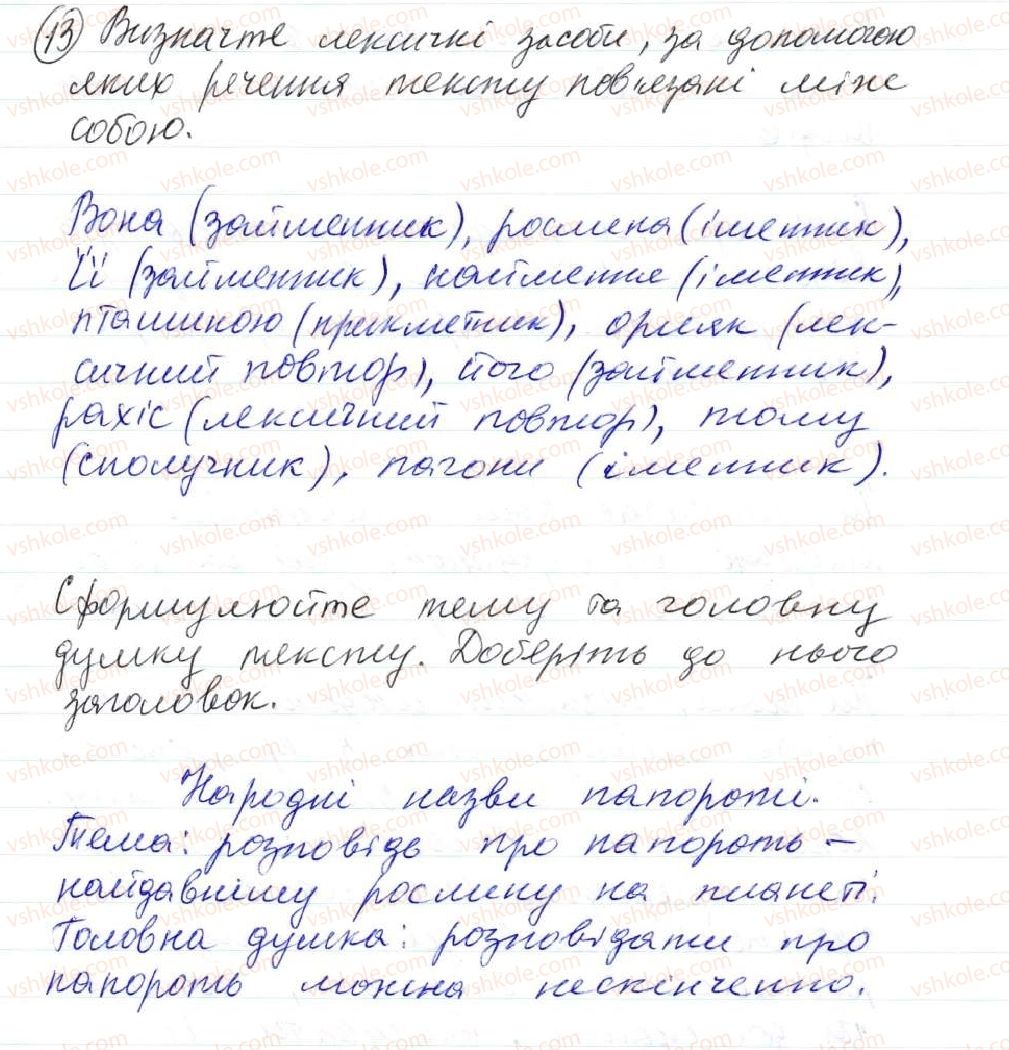 13 Визначте лексичкі засоби, за допомогою
яких речення тексту пов'язані між
собою.
Вона (займенник), рослина (іменник),
її (займенник), наймення (іменник),
пташиною (прикметник), орляк (лек-
сичний повтор), його (займенник),
рахіс (лексичний повтор), тому
(сполучник), пагони (іменник).
Сформулюйте тему та головну
думку тексту. Доберіть до нього
заголовок.
Народні назви папороті.
Тема: розповідь про папороть –
найдавнішу рослину на планеті.
Головна думка: розповідати про
папороть можна нескінченно.